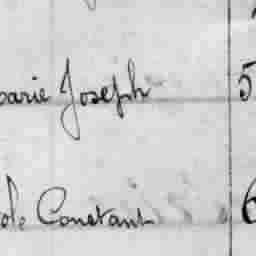 oarie Joseph 5
ole Constant 6